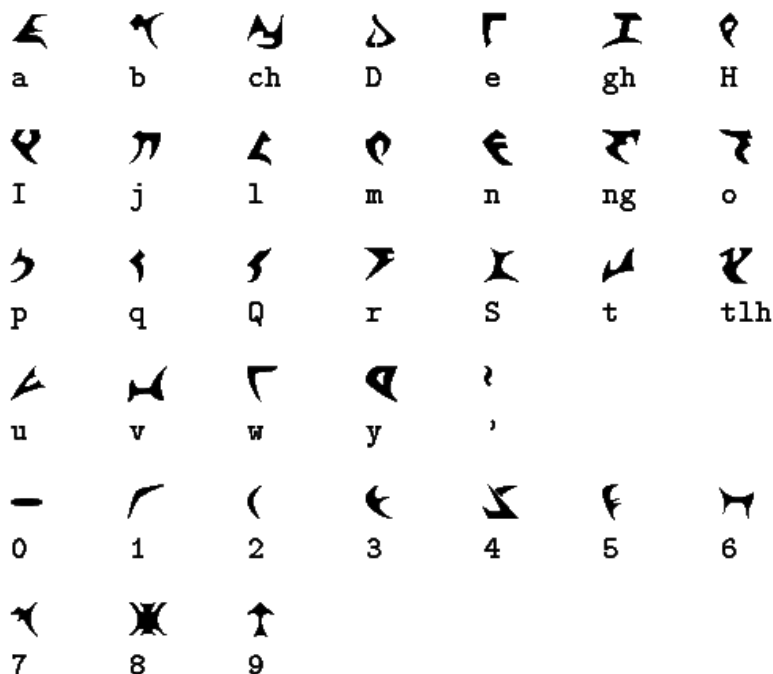 a b ch D e gh H
       
I j l m n ng o
      
p q Q r S t tlh
    
u v w y ’
      
0 1 2 3 4 5 6
  
7 8 9